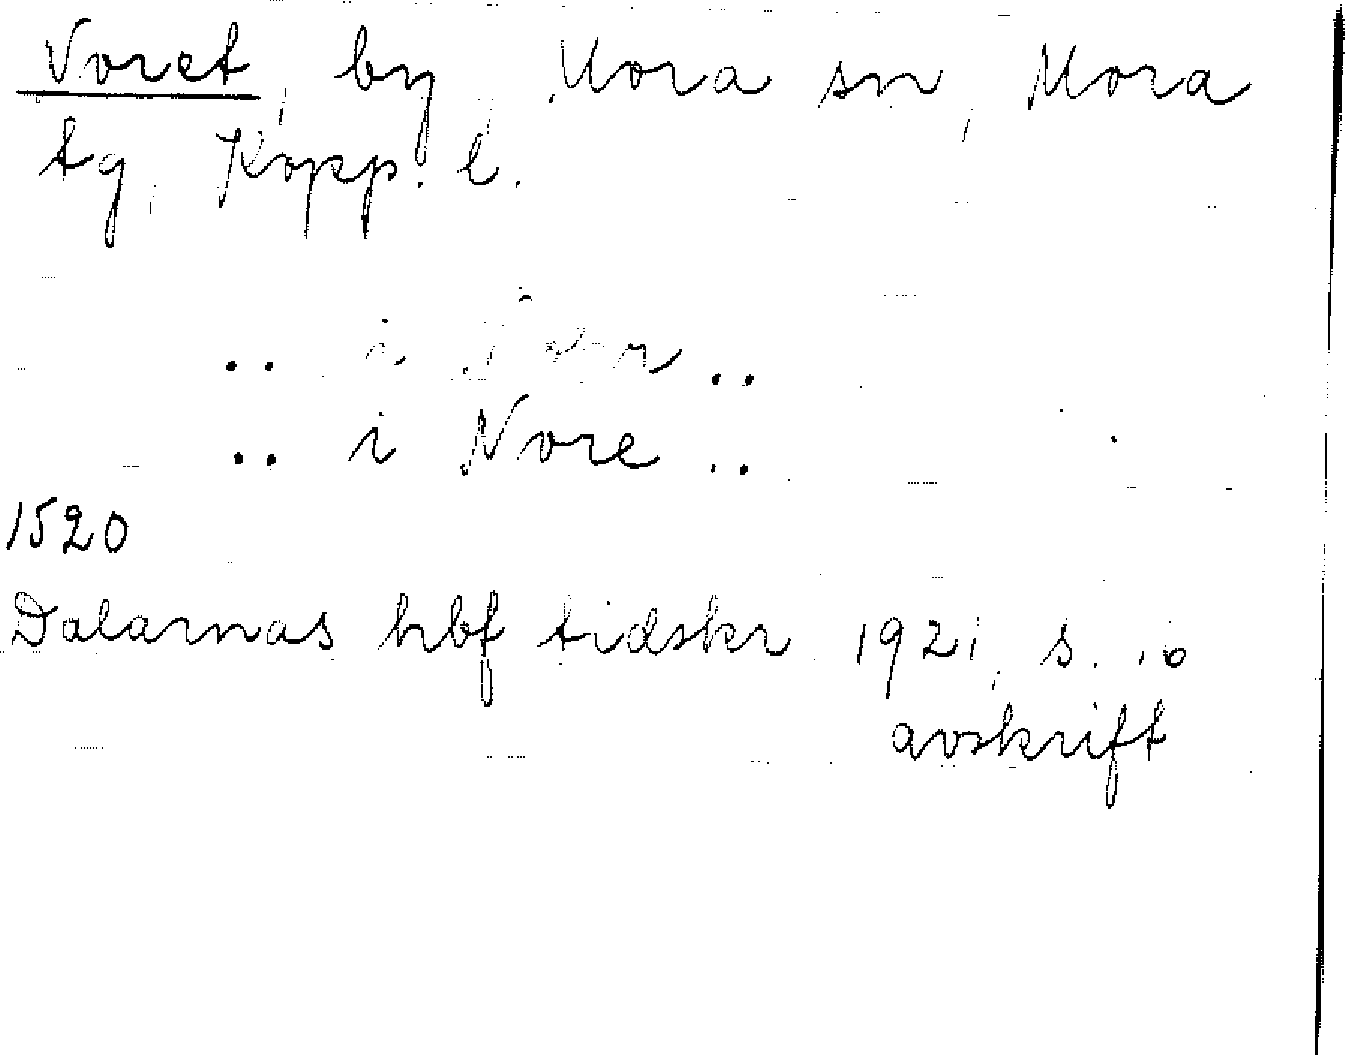 Noret, by, Mora sn, Mora
tg, Kopp. l.
.. i ..
.. i Nore ..
1520
Dalarnas hbf tidskr 1921, s. 10
avskrift